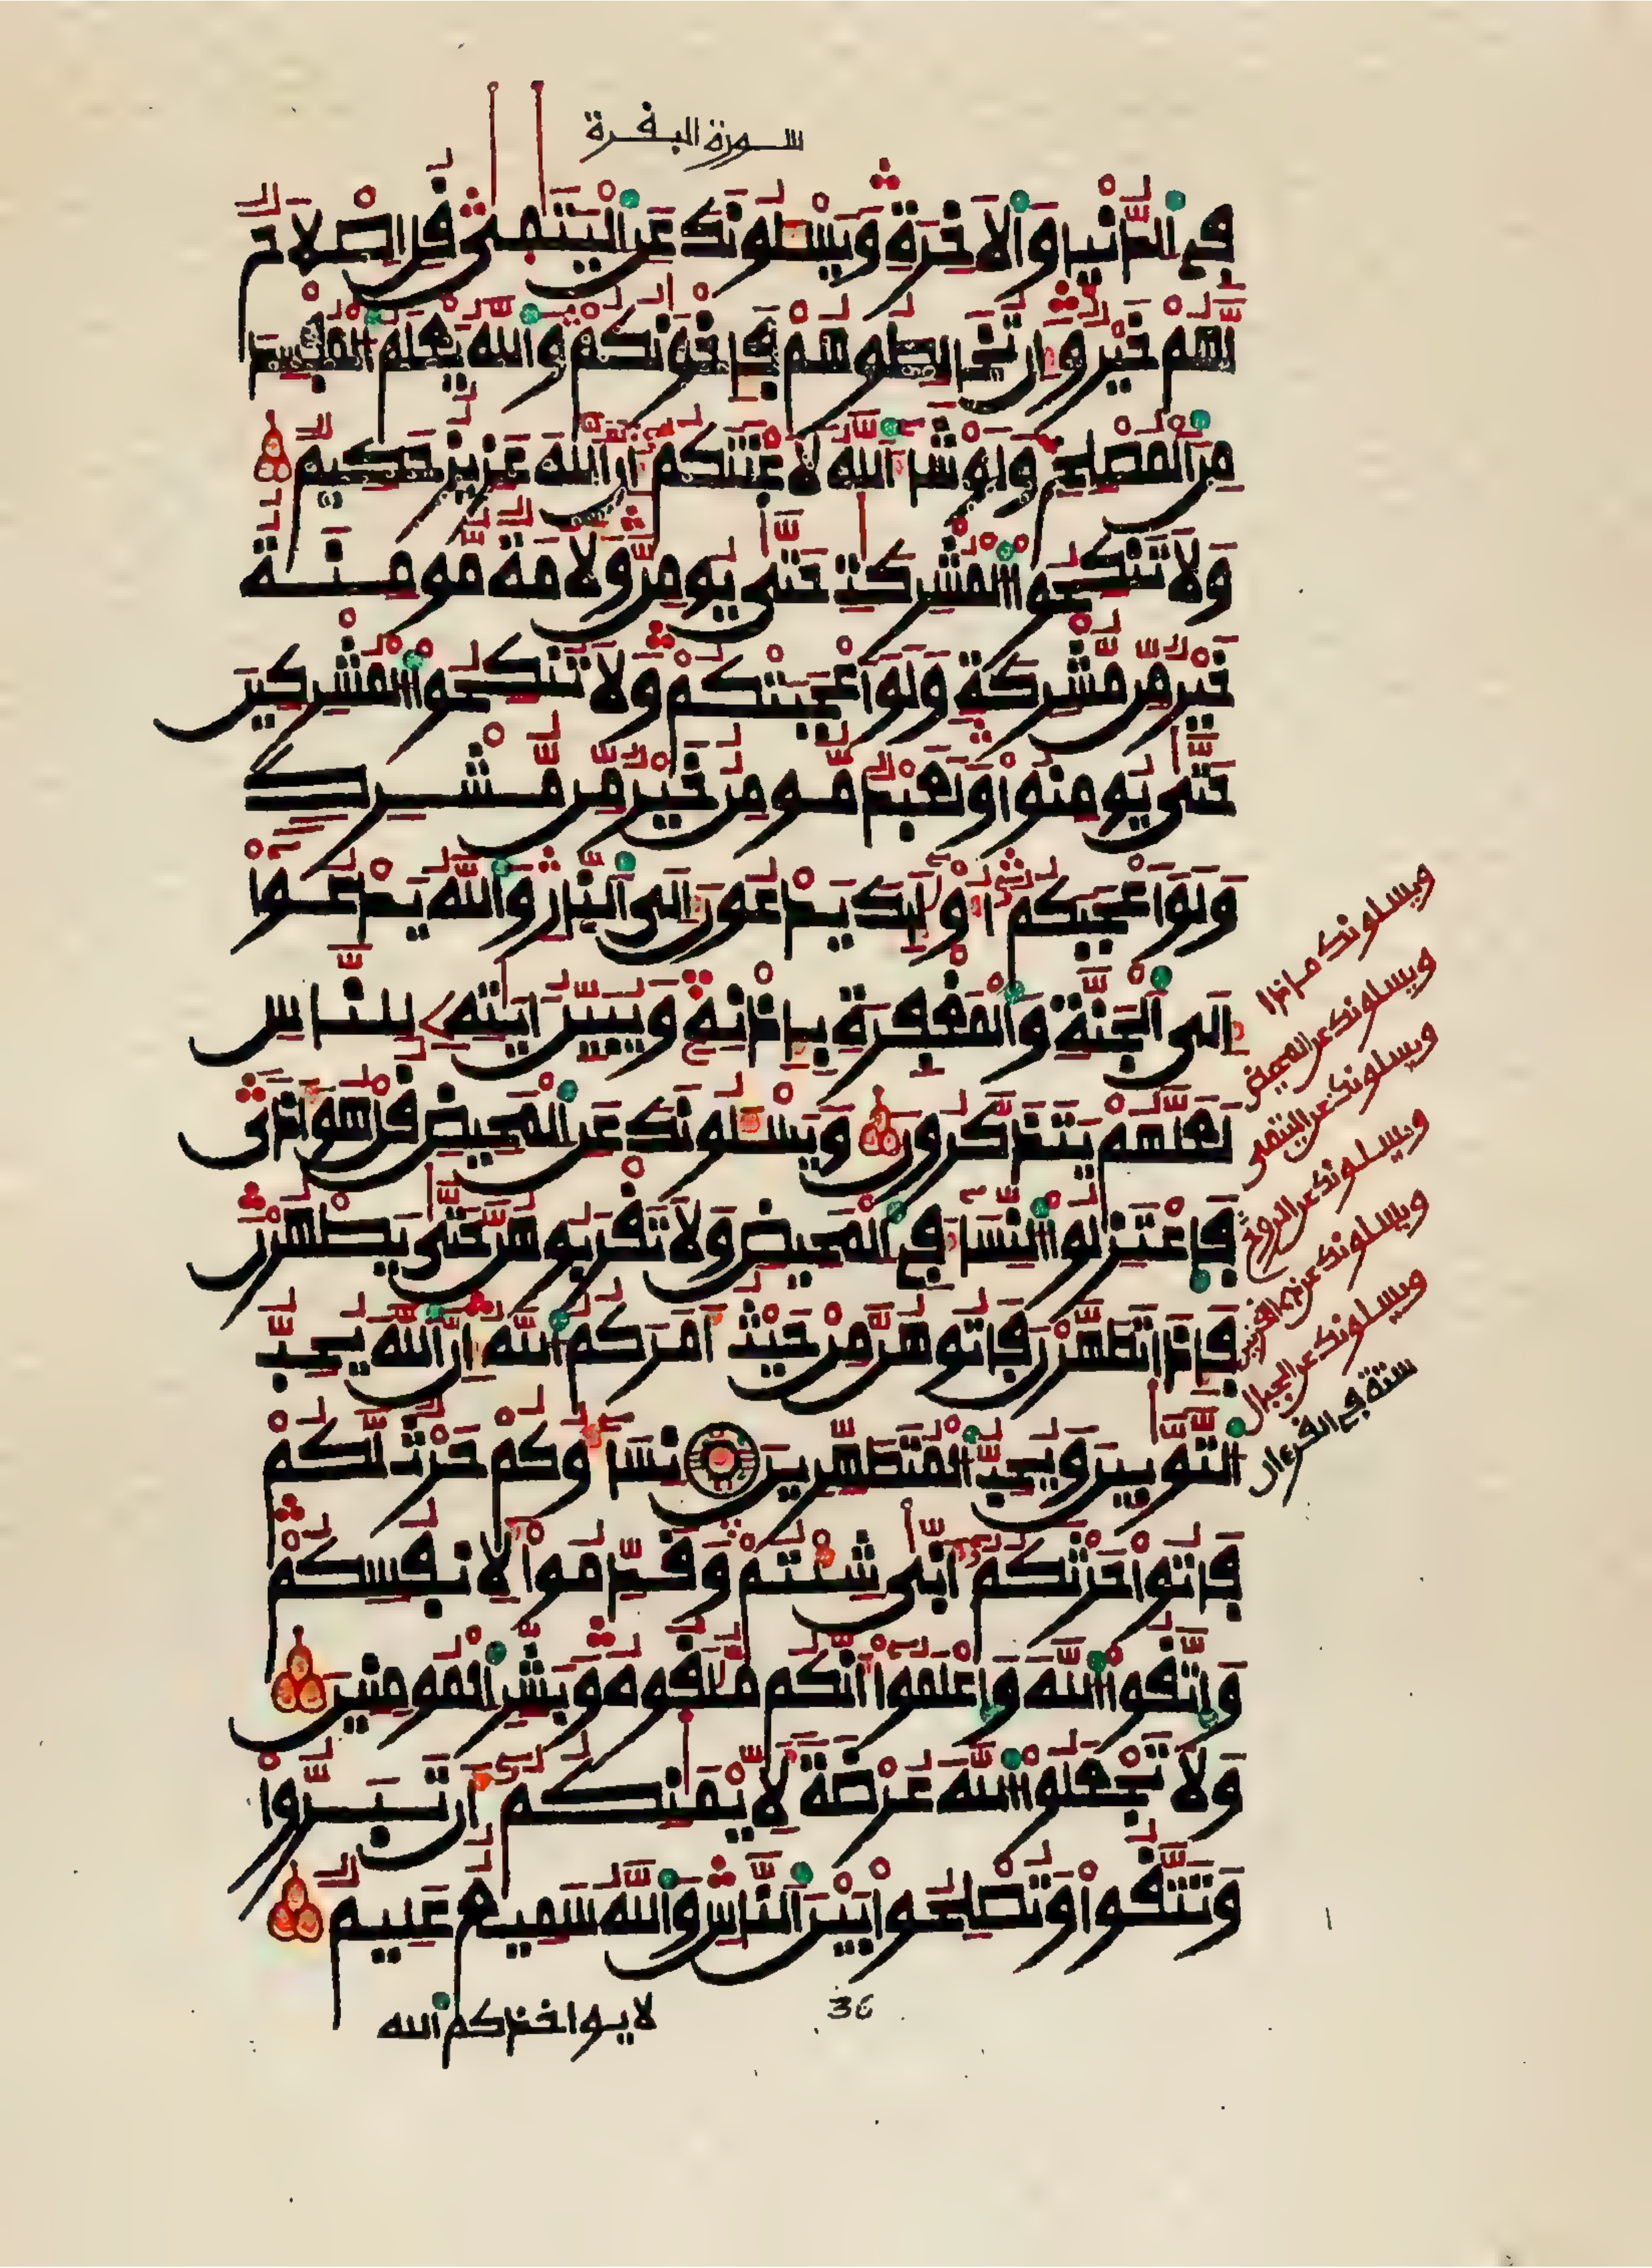 سورة البفرة
فِے اِ۬لدُّنْي۪ا وَالَاخِرَةِ وَيَسْـَٔلُونَكَ عَنِ اِ۬لْيَتَٰمَىٰ فُلِ اِصْلَاحٞ
لَّهُمْ خَيْرٞ وَإِن تُخَالِطُوهُمْ فَإِخْوَٰنُكُمْ وَاللَّهُ يَعْلَمُ اُ۬لْمُفْسِدَ
مِنَ اَ۬لْمُصْلِحِ وَلَوْ شَآءَ اَ۬للَّهُ لَأَعْنَتَكُمُۥٓ إِنَّ اَ۬للَّهَ عَزِيزٌ حَكِيمٞ
وَلَا تَنكِحُواْ اُ۬لْمُشْرِكَٰتِ حَتَّىٰ يُومِنَّ وَلَأَمَةٞ مُّومِنَةٌ
خَيْرٞ مِّن مُّشْرِكَةٖ وَلَوَ اَعْجَبَتْكُمْ وَلَا تُنكِحُواْ اُ۬لْمُشْرِكِينَ
حَتَّىٰ يُومِنُواْ وَلَعَبْدٞ مُّومِنٌ خَيْرٞ مِّن مُّشْرِكٖ
وَلَوَ اَعْجَبَكُمُۥٓ أُوْلَٰٓئِكَ يَدْعُونَ إِلَى اَ۬لنّ۪ارِ وَاللَّهُ يَدْعُوٓاْ
إِلَى اَ۬لْجَنَّةِ وَالْمَغْفِرَةِ بِإِذْنِهِۦ وَيُبَيِّنُ ءَايَٰتِهِۦ لِلنَّاسِ
لَعَلَّهُمْ يَتَذَكَّرُونَ وَيَسْـَٔلُونَكَ عَنِ اِ۬لْمَحِيضِ فُلْ هُوَ أَذىٗ
فَاعْتَزِلُواْ اُ۬لنِّسَآءَ فِے اِ۬لْمَحِيضِ وَلَا تَفْرَبُوهُنَّ حَتَّىٰ يَطْهُرْنَ
فَإِذَا تَطَهَّرْنَ فَاتُوهُنَّ مِنْ حَيْثُ أَمَرَكُمُ اُ۬للَّهُ إِنَّ اَ۬للَّهَ يُحِبُّ
اُ۬لتَّوَّٰبِينَ وَيُحِبُّ اُ۬لْمُتَطَهِّرِينَ نِسَآؤُكُمْ حَرْثٞ لَّكُمْ
فَاتُواْ حَرْثَكُمُۥٓ أَنّ۪ىٰ شِئْتُمْ وَفَدِّمُواْ لِأَنفُسِكُمْ
وَاتَّفُواْ اُ۬للَّهَ وَاعْلَمُوٓاْ أَنَّكُم مُّلَٰفُوهُ وَبَشِّرِ اِ۬لْمُومِنِينَ
وَلَا تَجْعَلُواْ اُ۬للَّهَ عُرْضَةٗ لِّأَيْمَٰنِكُمُۥٓ أَن تَبَرُّواْ
وَتَتَّفُواْ وَتُصْلِحُواْ بَيْنَ اَ۬لنَّاسِ وَاللَّهُ سَمِيعٌ عَلِيمٞ
لا يواخذكم الله
36
ويسلونك ماذا
ويسلونك عن المحيض
ويسلونك عن اليتمى
ويسلونك عن الروح
ويسلونك عن ذي الفرنين
ويسلونك عن الجبال
ستة في الفرءان